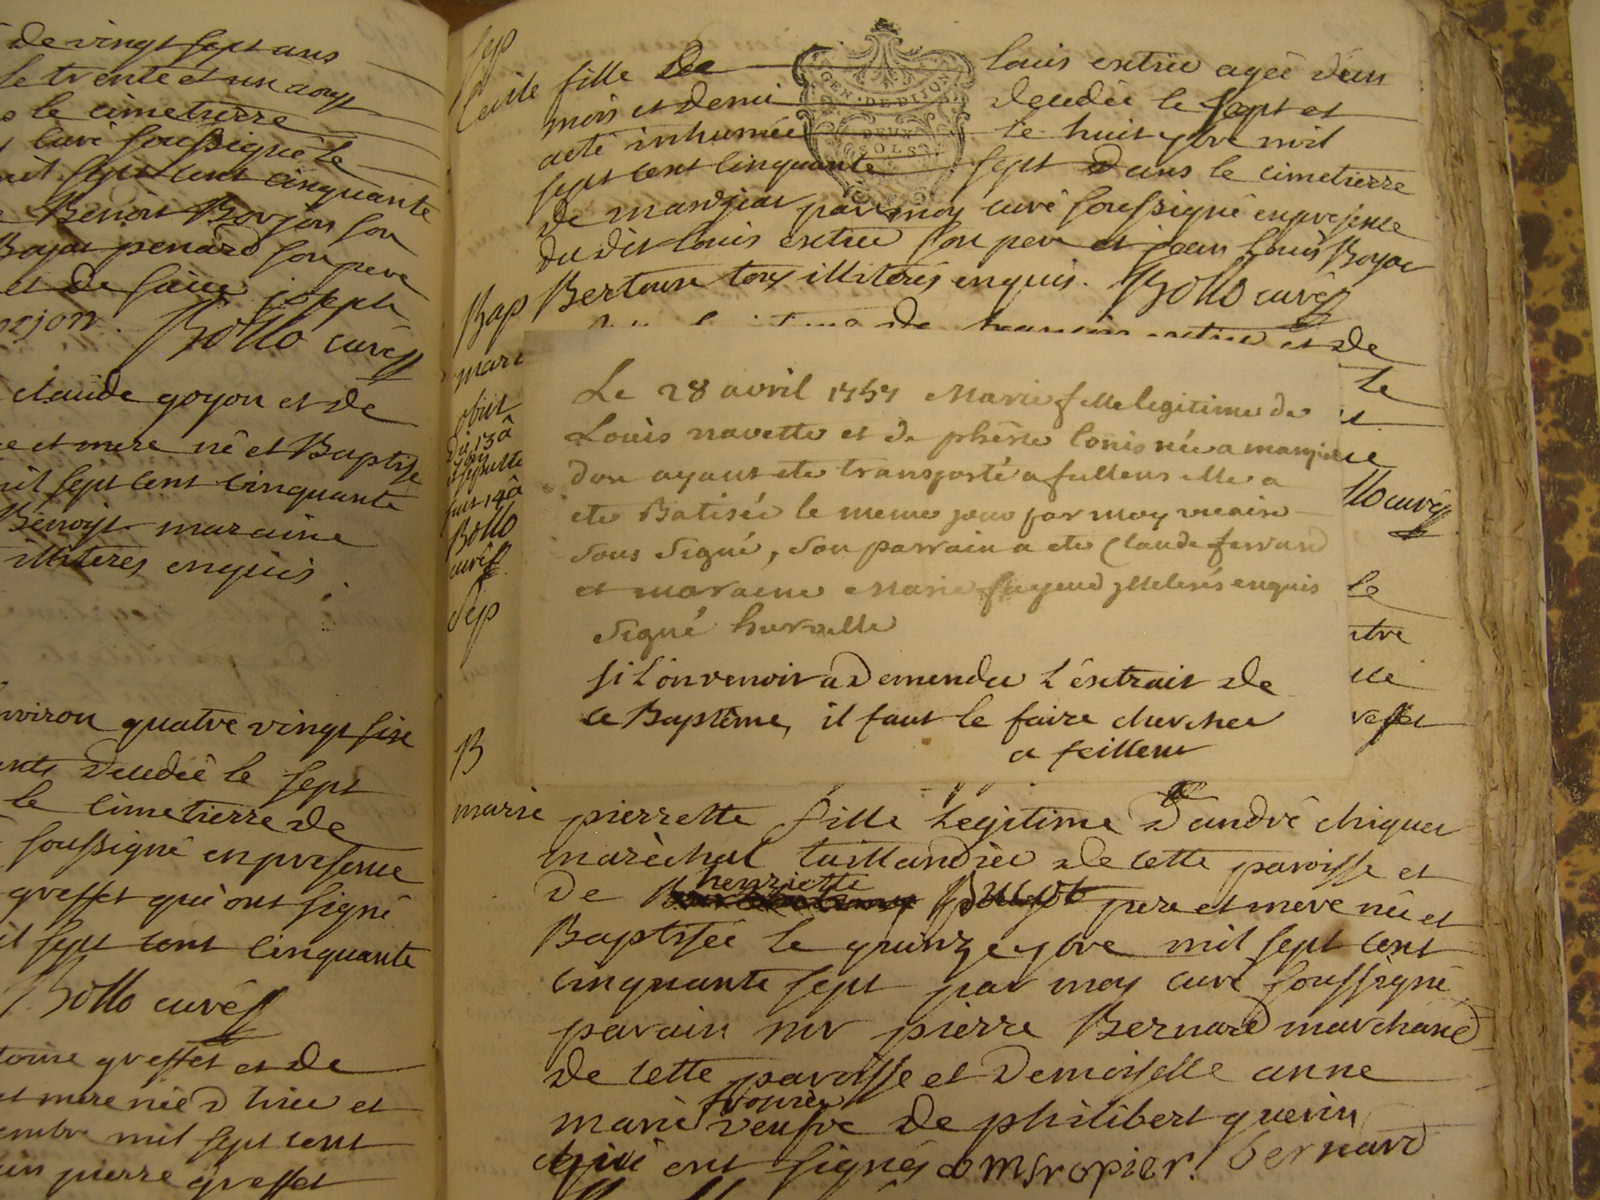 de vingt sept ans
le trente et un aoust
le cimetierre
curé soussigné le
mil sept cent cinquante
Benoit Borjon son
penard son pere
et de faive joseph
Borjon. Bollo curé
claude goyon et de
pere et mere né et Baptisé
mil sept cent cinquante
Benoist maraine
illiteres enquis.
environ quatre vingt six
ans decedée le sept
le cimetierre de
soussigné en presence
greffet qui ont signé
mil sept cent cinquante
Bollo curé
toine greffet et de
et mere née d hier et
embre mil sept cent
pierre greffet
Sep
Cecile fille de louis extrie ageé d'un
mois et demi decedée le sept et
a eté inhumée le huit 7bre mil
sept cent cinquante sept dans le cimetierre
de manziat par moy curé soussigné en presence
du dit louis extrie son pere et jean louis Boyat
Bertoux tous illiterés enquis. Bollo curé
GEN. DE DIJON
DEUX
SOLS
Bap
mari
obiit
du 13 a
sepulte
fut 14 a
Bollo
curé
Sep
B
et de
Le 28 avril 1757 Marie fille legitime de
Louis navette et de phêrie louis née a manziat
don ayant ete transporté a fellens elle a
ete Batisée le meme jour par moy vicaire
sous signé, son parrain a ete Claude ferrand
et maraine Marie fayend illiterés enquis
signé huraelle
si l'on venoit a demender l'extrait de
ce Baptême, il faut le faire chercher
a feillens
Bollo curé
marie pierrette fille Legitime d'andré chiquet
marèchal taillandier de cette paroisse et
de henriette Bugot pere et mere née et
Baptisée le quinze 7bre mil sept cent
cinquante sept par moy curé soussigné
parain mr pierre Bernard marchand
de cette paroisse et Demoiselle anne
marie veufve de philibert guerin
qui ont signés amsropier. bernard